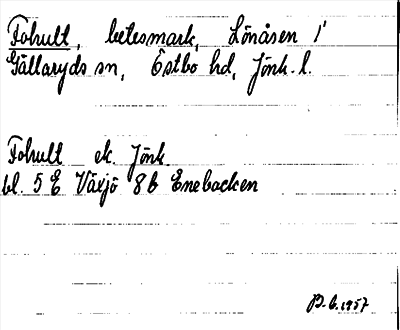 Fohult, betesmark, Lönåsen 1'
Gällaryds sn, Östbo hd, Jönk. l.
Fohult ek. Jönk.
bl. 5 E Växjö 8 b Enebacken
1957